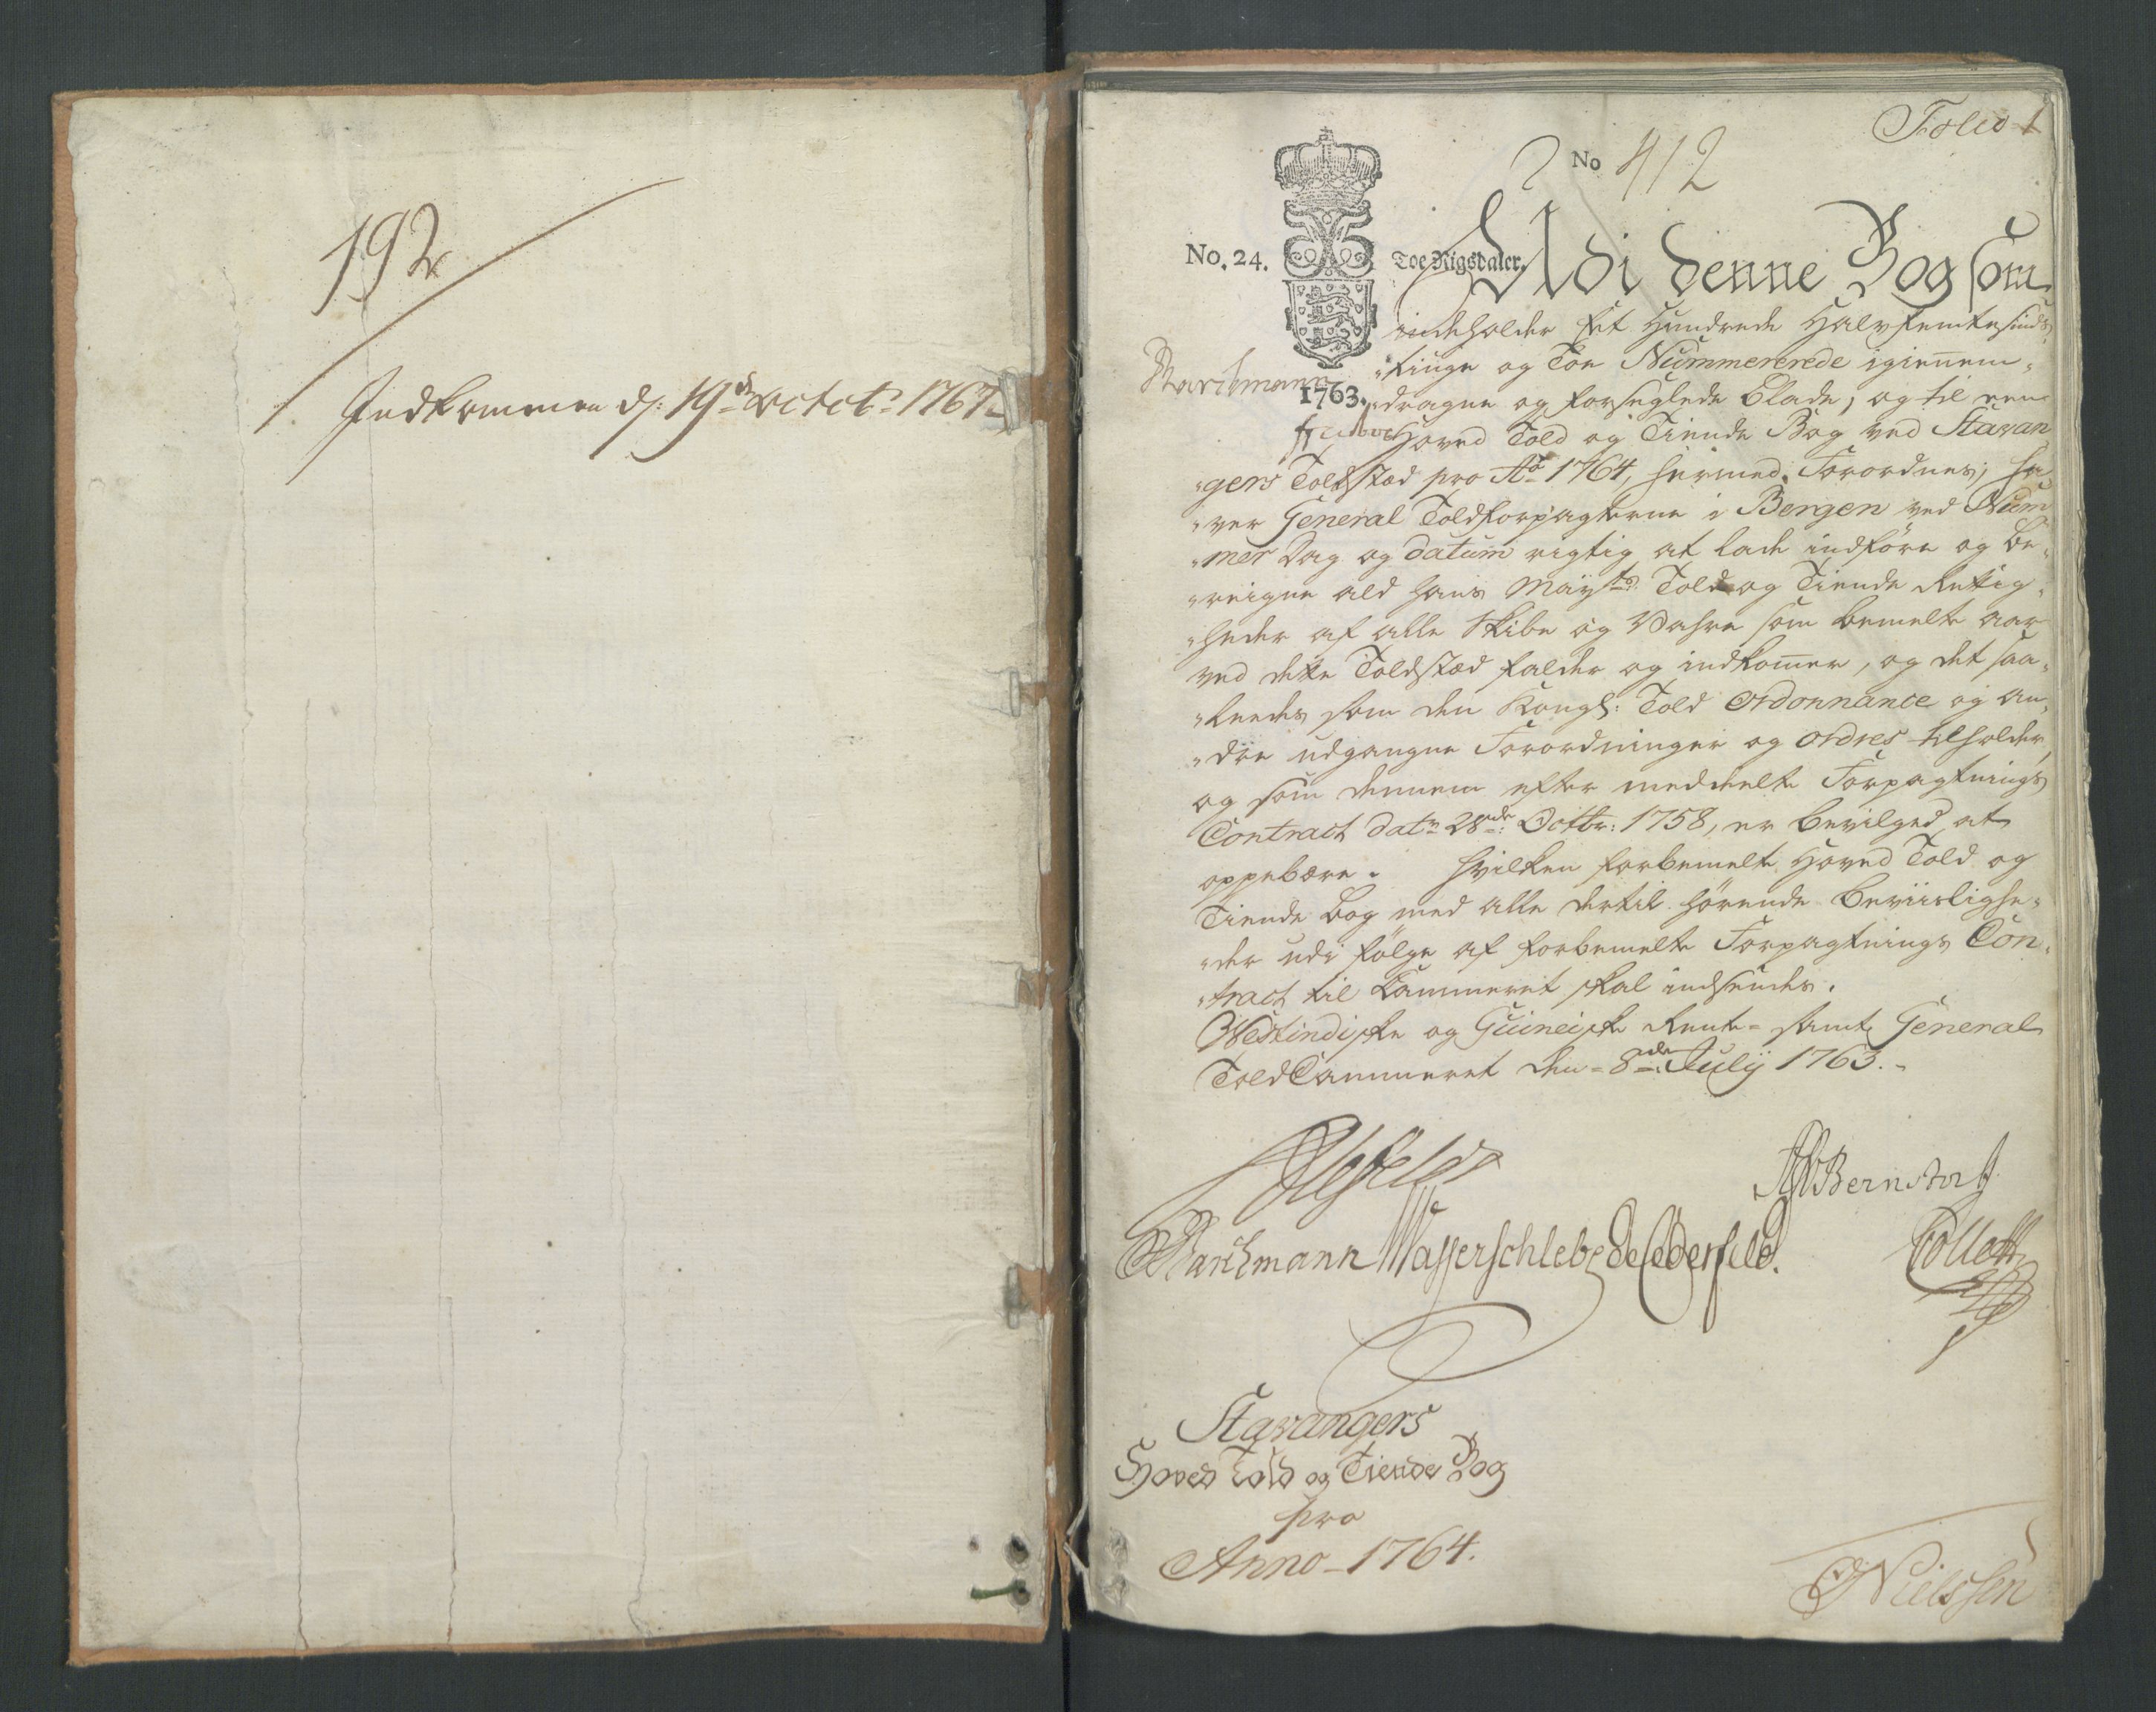 192
Indkommen d: 19de octobr 1767
Folio 1
No 412
No. 24.
Toe Rigsdaler.
1763.
Udi denne Bog som
indeholder Et Hundrede Halvfemtesinds-
tiuge og Toe Nummererede igiennem-
dragne og forseglede Blade, og til een
Hoved Told og Tiende Bog ved Stavan
gers Toldsted pro Ao 1764, hermed Forordnes, ha
ver General Toldforpagterne i Bergen ved Num
mer Dag og datum rigtig at lade indføre og be-
reigne ald hans Mayts: Told og Tiende Rettig-
heder af alle Skibe og Vahre som bemelte aar
ved dette Toldsted falder og indkomer, og det saa-
leedes som den Kongl: Told Ordonnance og an-
dre udgangne Forordninger og Ordres tilholder,
og som dennem efter meddeelte Forpagtnings
Contract dat 28de: Octbr: 1758, er bevilged at
oppebære. Hvilken forbemelte Hoved Told og
Tiende Bog med alle dertil hørende beviislighe-
der udi følge af forbemelte Forpagtnings Con-
tract til Cammeret skal indsendes.
Westindiske og Guineiske Rente- samt General
ToldCammeret den 8de: Julij 1763.
Ahlefeldt
Bernstorf
Barthmann Wasserschlebe de Cederfeld. Collett
Stavangers
Hoved Told og Tiende Bog
pro
Anno 1764.
Nielssen